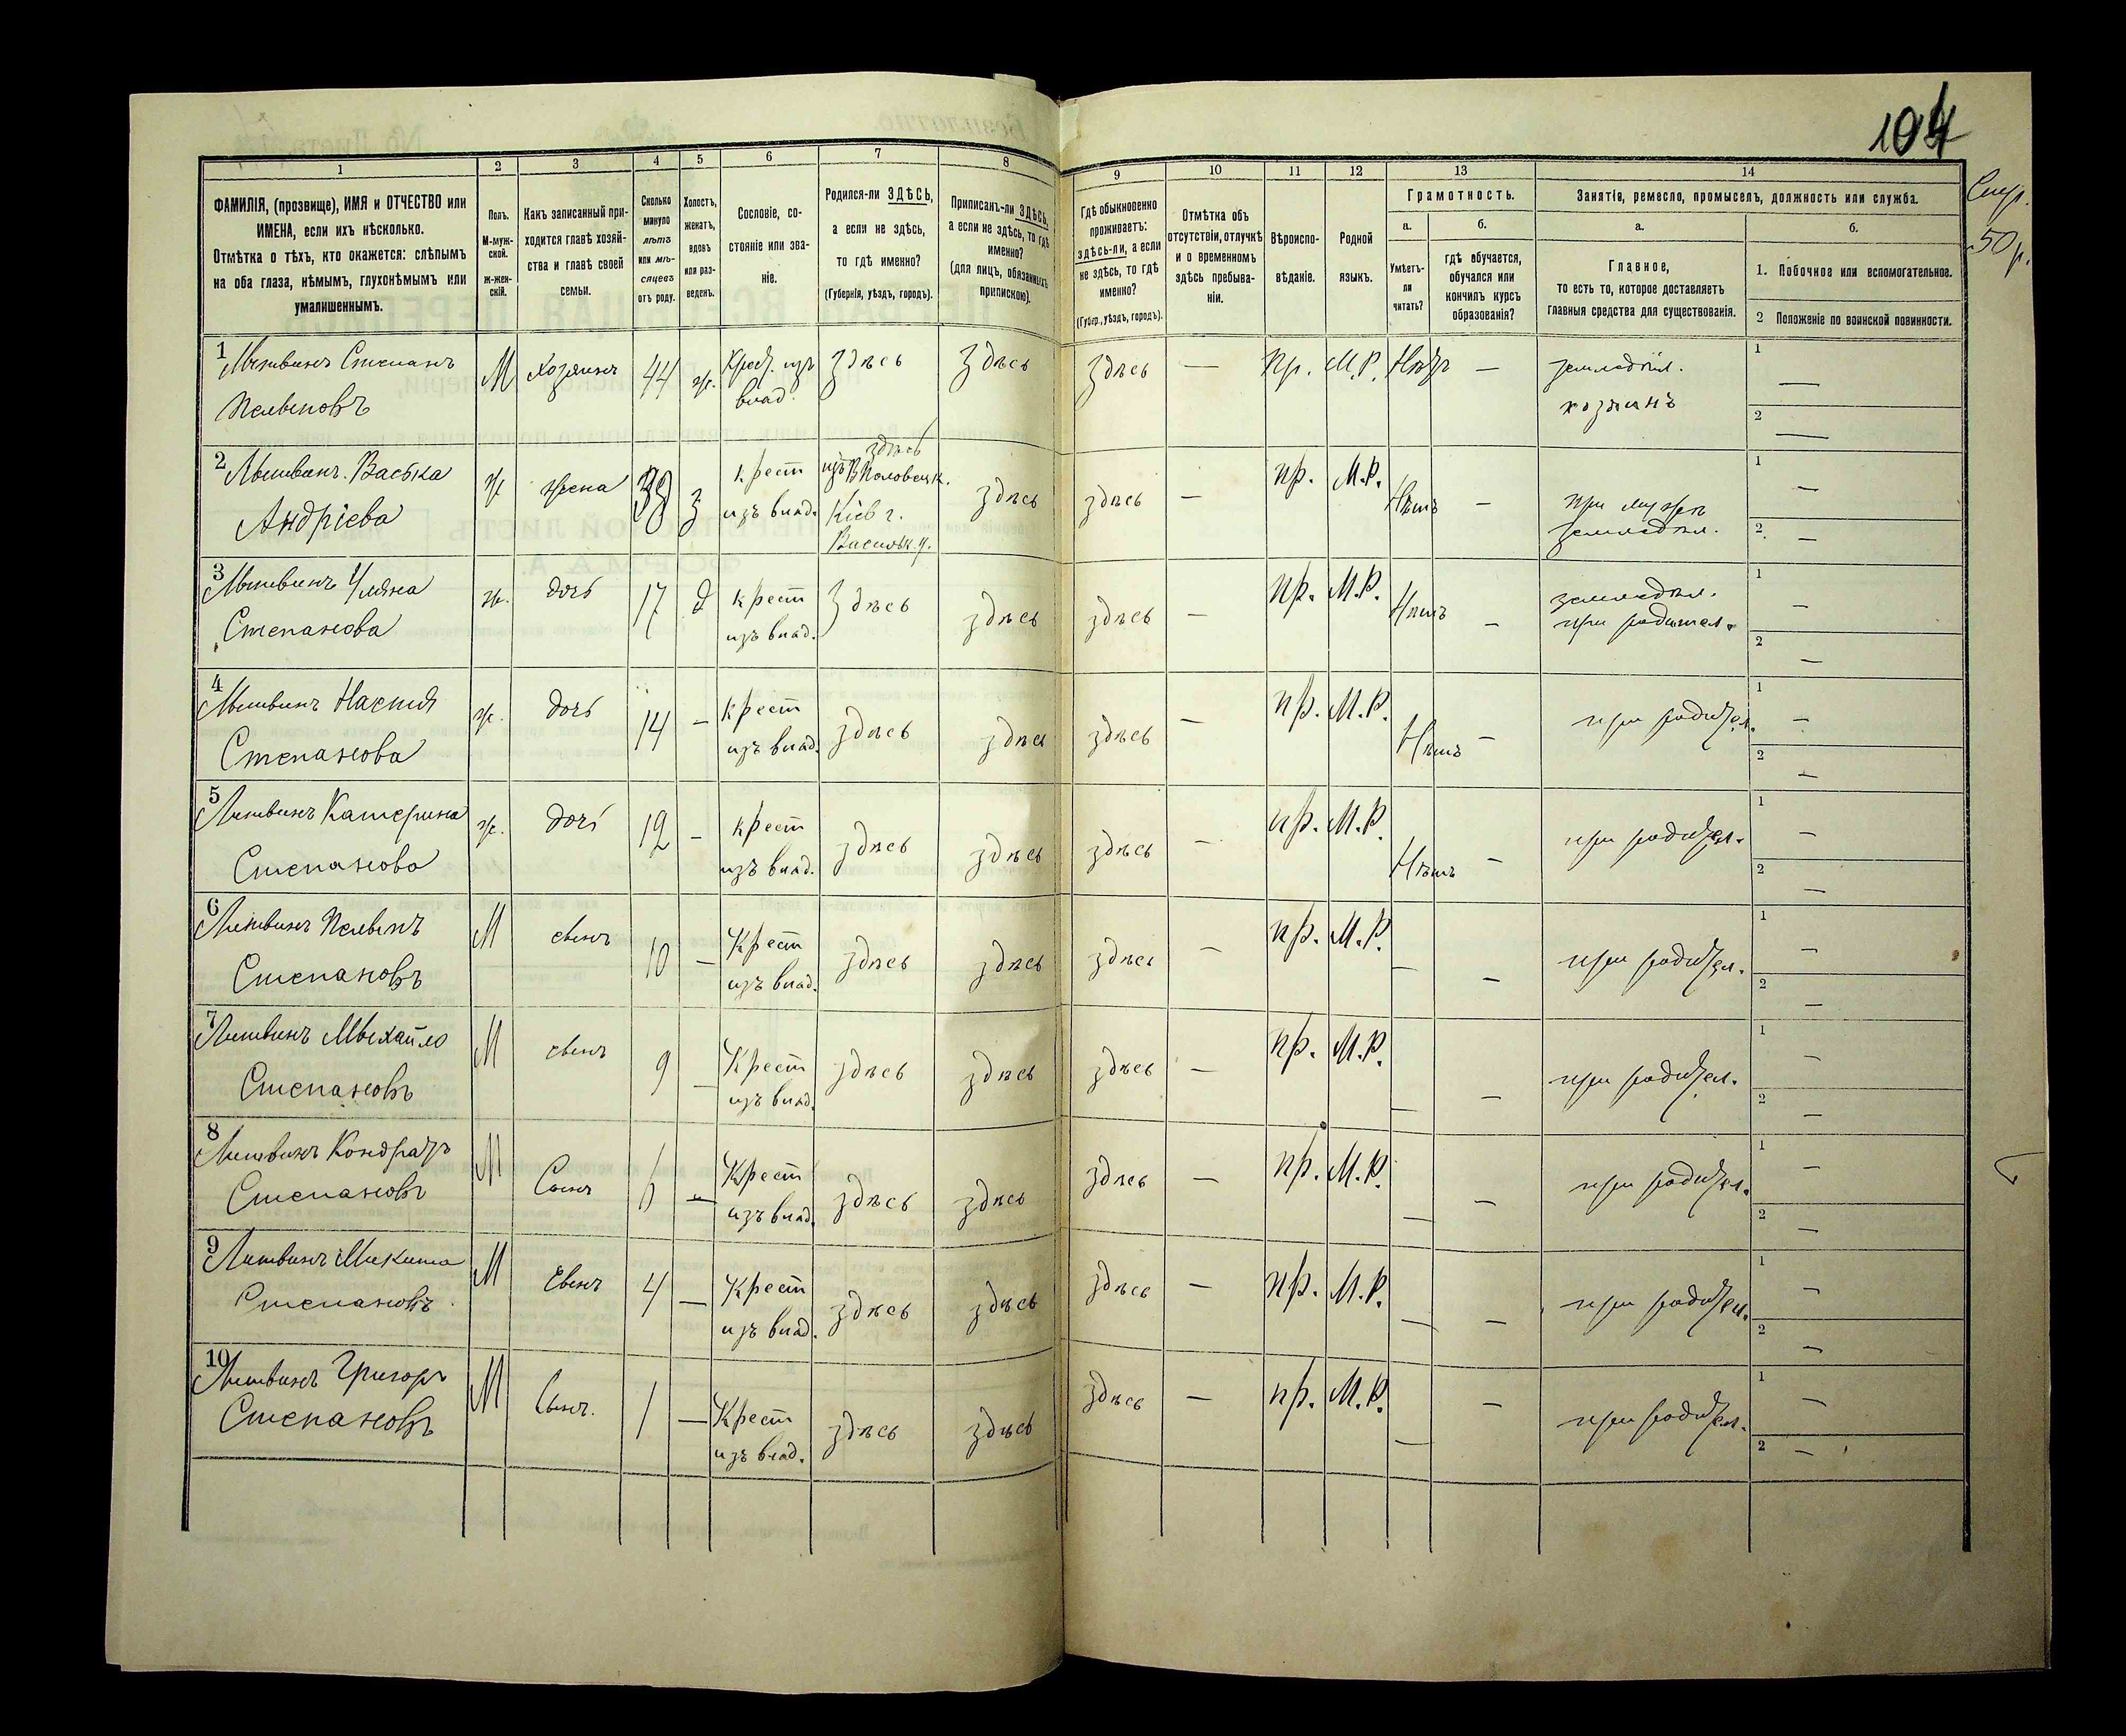 104
Стр.
50 р.
1
2
3
4
5
6
7
8
9
10
11
12
13
14
ФАМИЛІЯ, (прозвище), ИМЯ и ОТЧЕСТВО или
ИМЕНА, если ихъ нѣсколько.
Отмѣтка о тѣхъ, кто окажется: слѣпымъ
на оба глаза, нѣмымъ, глухонѣмымъ или
умалишеннымъ.
Полъ.
М-муж-
ской.
ж-жен-
скій.
Какъ записанный при-
ходится главѣ хозяй-
ства и главѣ своей
семьи.
Сколько
минуло
лѣтъ
или мѣ-
сяцевъ
отъ роду.
Холостъ,
женатъ,
вдовъ
или раз-
веденъ.
Сословіе, со-
стояніе или зва-
ніе.
Родился-ли ЗДѢСЬ,
а если не здѣсь,
то гдѣ именно?
(Губернія, уѣздъ, городъ).
Приписанъ-ли ЗДѢСЬ,
а если не здѣсь, то гдѣ
именно?
(для лицъ, обязанныхъ
припискою).
Гдѣ обыкновенно
проживаетъ:
здѣсь-ли, а если
не здѣсь, то гдѣ
именно?
(Губер., уѣздъ, городъ).
Отмѣтка объ
отсутствіи, отлучкѣ
и о временномъ
здѣсь пребыва-
ніи.
Вѣроиспо-
вѣданіе.
Родной
языкъ.
Грамотность.
а.
Умѣетъ-
ли
читать?
б.
гдѣ обучается,
обучался или
кончилъ курсъ
образованія?
Занятія, ремесло, промыселъ, должность или служба.
а.
Главное,
то есть то, которое доставляетъ
главныя средства для существованія.
б.
1. Побочное или вспомогательное.
2 Положеніе по воинской повинности.
1
Литвинъ Степанъ
М
хозяинъ
44
ж.
Крест. изъ
влад.
Здѣсь
Здѣсь
Здѣсь
—
Пр.
М.Р.
Нѣтъ
—
земледѣл.
хозяинъ
1 —
2 —
2
Литвинъ Васька
Андріева
ж
жена
38
з
крест
изъ влад.
здѣсь
Кіев г.
Васильк. у.
здѣсь
здѣсь
—
пр.
М.Р.
Нѣтъ
—
при мужѣ
земледѣл.
1 —
2. —
3
Литвинъ Уляна
Степанова
ж.
дочь
17
д
крест
изъ влад.
Здѣсь
здѣсь
здѣсь
—
пр.
М.Р.
Нѣтъ
—
земледѣл.
при родител.
1 —
2 —
4
Литвинъ Настія
Степанова
ж.
дочь
14
—
крест
изъ влад.
здѣсь
здѣсь
здѣсь
—
пр.
М.Р.
Нѣтъ
—
при родител.
1 —
2 —
5
Литвинъ Катерина
Степанова
ж.
дочь
12
—
крест
изъ влад.
здѣсь
здѣсь
здѣсь
—
пр.
М.Р.
Нѣтъ
—
при родител.
1 —
2 —
6
Литвинъ
Степановъ
М
сынъ
10
—
Крест
изъ влад.
здѣсь
здѣсь
здѣсь
—
пр.
М.Р.
—
—
при родител.
1 —
2 —
7
Литвинъ Мыхайло
Степановъ
М
сынъ
9
—
Крест
изъ влад.
здѣсь
здѣсь
здѣсь
—
пр.
М.Р.
—
—
при родител.
1 —
2 —
8
Литвинъ Кондратъ
Степановъ
М
Сынъ
6
—
Крест
изъ влад.
здѣсь
здѣсь
здѣсь
—
пр.
М.Р.
—
—
при родител.
1 —
2 —
9
Литвинъ Микита
Степановъ
М
Сынъ
4
—
Крест
изъ влад.
здѣсь
здѣсь
здѣсь
—
пр.
М.Р.
—
—
при родител.
1 —
2 —
10
Литвинъ Григоръ
Степановъ
М
Сынъ.
1
—
Крест
изъ влад.
здѣсь
здѣсь
здѣсь
—
пр.
М.Р.
—
—
при родител.
1 —
2 —